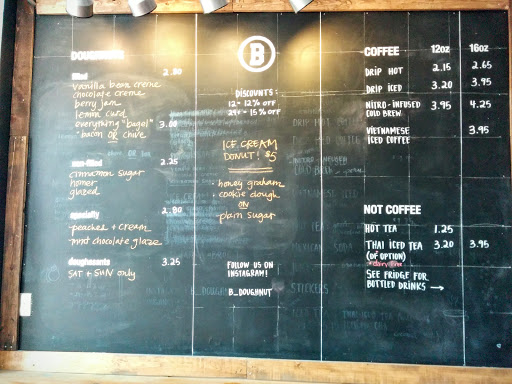 DOUGHNUTS
filled 2.80
vanilla bean creme
chocolate creme
berry jam
lemon curd
everything "bagel" 3.00
*bacon OR chive
non-filled 2.25
cinnamon sugar
homer
glazed
specialty 2.80
peaches + cream
mint chocolate glaze
doughssants 3.25
SAT + SUN only
B
DISCOUNTS:
12 - 12% OFF
24+ - 15% OFF
ICE CREAM
DONUT! $5
· honey graham
+ cookie dough
ON
plain sugar
FOLLOW US ON
INSTAGRAM!
B_DOUGHNUT
COFFEE 12oz 16oz
DRIP HOT 2.15 2.65
DRIP ICED 3.20 3.95
NITRO-INFUSED 3.95 4.25
COLD BREW
VIETNAMESE 3.95
ICED COFFEE
NOT COFFEE
HOT TEA 1.25
THAI ICED TEA 3.20 3.95
(DF OPTION)
SEE FRIDGE FOR
BOTTLED DRINKS →